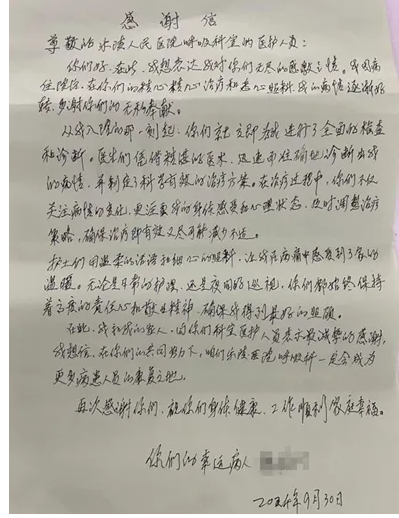 感谢信
尊敬的乐陵人民医院呼吸科室的医护人员:
你们好,在此,我想表达我对你们无尽的感激之情。我因病
住院后,在你们的精心治疗和悉心照料,我的病情逐渐好
转,感谢你们的无私奉献。
从我入院的那一刻起,你们就立即为我进行了全面的检查
和诊断。医生们凭借精湛的医术,迅速而准确地诊断出我
的病情,并制定了科学有效的治疗方案。在治疗过程中,你们不仅
关注病情的变化,更注重我的身体感受和心理状态,及时调整治疗
策略,确保治疗即有效又尽可能减少不适。
护士们用温柔的话语和细心的照料,让我在病痛中感受到了家的
温暖。无论是日常的护理,还是夜间的巡视,你们都始终保持
着高度的责任心和敬业精神,确保我得到最好的照顾。
在此,我和我的家人,向你们科室医护人员表示最诚挚的感谢,
我想信,在你们的共同努力下,咱们乐陵医院呼吸科一定会成为
更多病患人员的康复之地。
再次感谢你们,祝你们身体健康,工作顺利,家庭幸福。
你们的幸运病人
2024年9月30日